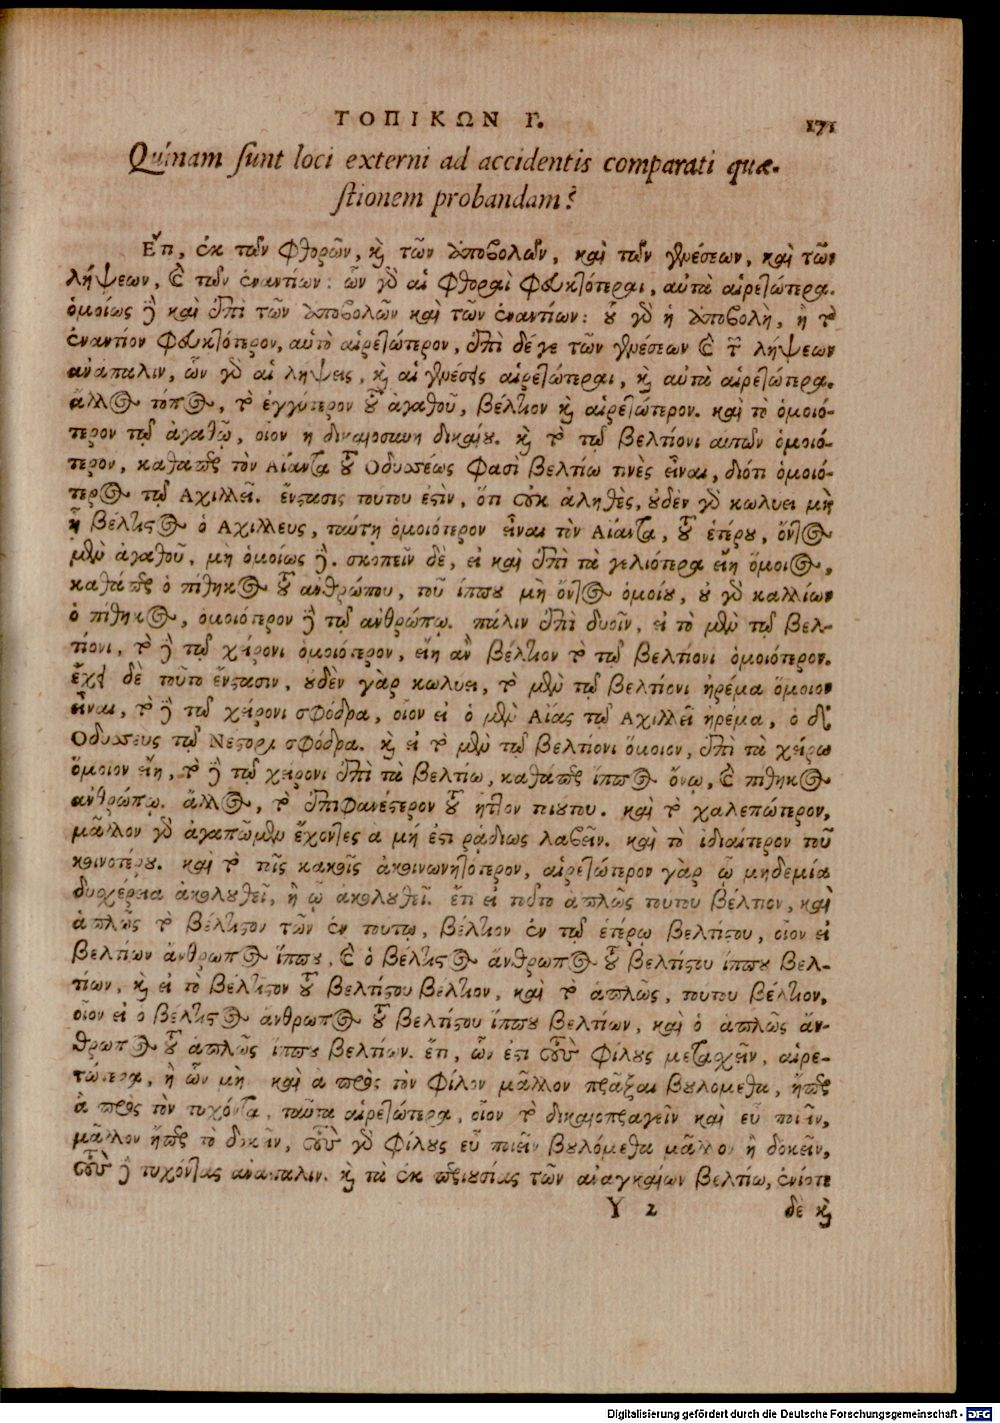 ΤΟΠΙΚΩΝ Γ. 171
Quinam sunt loci externi ad accidentis comparati quæ-
stionem probandam?
Ἔτι, ἐκ τῶν φθορῶν, καὶ τῶν ἀποβολῶν, καὶ τῶν γενέσεων, καὶ τῶν
λήψεων, καὶ τῶν ἐναντίων: ὧν γὰρ αἱ φθοραὶ φευκτότεραι, αὐτὰ αἱρετώτερα.
ὁμοίως δὲ καὶ ἐπὶ τῶν ἀποβολῶν καὶ τῶν ἐναντίων: οὗ γὰρ ἡ ἀποβολὴ, ἢ τὸ
ἐναντίον φευκτότερον, αὐτὸ αἱρετώτερον, ἐπὶ δέ γε τῶν γενέσεων καὶ τῶν λήψεων
ἀνάπαλιν, ὧν γὰρ αἱ λήψεις, καὶ αἱ γενέσεις αἱρετώτεραι, καὶ αὐτὰ αἱρετώτερα.
ἄλλος τόπος, τὸ ἐγγύτερον τοῦ ἀγαθοῦ, βέλτιον καὶ αἱρετώτερον. καὶ τὸ ὁμοιό-
τερον τῷ ἀγαθῷ, οἷον ἡ δικαιοσύνη δικαίου. καὶ τὸ τῷ βελτίονι αὐτῶν ὁμοιό-
τερον, καθάπερ τὸν Αἴαντα τοῦ Ὀδυσσέως φασὶ βελτίω τινὲς εἶναι, διότι ὁμοιό-
τερος τῷ Ἀχιλλεῖ. ἔνστασις τούτου ἐστὶν, ὅτι οὐκ ἀληθὲς, οὐδὲν γὰρ κωλύει μὴ
ᾗ βέλτιστος ὁ Ἀχιλλεὺς, ταύτῃ ὁμοιότερον εἶναι τὸν Αἴαντα, τοῦ ἑτέρου, ὄντος
μὲν ἀγαθοῦ, μὴ ὁμοίως δέ. σκοπεῖν δὲ, εἰ καὶ ἐπὶ τὰ γελοιότερα εἴη ὅμοιος,
καθάπερ ὁ πίθηκος τοῦ ἀνθρώπου, τοῦ ἵππου μὴ ὄντος ὁμοίου, οὐ γὰρ καλλίων
ὁ πίθηκος, ὁμοιότερον δὲ τῷ ἀνθρώπῳ. πάλιν ἐπὶ δυοῖν, εἰ τὸ μὲν τῷ βελ-
τίονι, τὸ δὲ τῷ χείρονι ὁμοιότερον, εἴη ἂν βέλτιον τὸ τῷ βελτίονι ὁμοιότερον.
ἔχει δὲ τοῦτο ἔνστασιν, οὐδὲν γὰρ κωλύει, τὸ μὲν τῷ βελτίονι ἠρέμα ὅμοιον
εἶναι, τὸ δὲ τῷ χείρονι σφόδρα, οἷον εἰ ὁ μὲν Αἴας τῷ Ἀχιλλεῖ ἠρέμα, ὁ δὲ
Ὀδυσσεὺς τῷ Νέστορι σφόδρα. καὶ εἰ τὸ μὲν τῷ βελτίονι ὅμοιον, ἐπὶ τὰ χείρω
ὅμοιον εἴη, τὸ δὲ τῷ χείρονι ἐπὶ τὰ βελτίω, καθάπερ ἵππος ὄνῳ, καὶ πίθηκος
ἀνθρώπῳ. ἄλλος, τὸ ἐπιφανέστερον τοῦ ἧττον τοιούτου. καὶ τὸ χαλεπώτερον,
μᾶλλον γὰρ ἀγαπῶμεν ἔχοντες ἃ μή ἐστι ῥᾳδίως λαβεῖν. καὶ τὸ ἰδιαίτερον τοῦ
κοινοτέρου. καὶ τὸ τοῖς κακοῖς ἀκοινωνητότερον, αἱρετώτερον γὰρ ᾧ μηδεμία
δυσχέρεια ἀκολουθεῖ, ἢ ᾧ ἀκολουθεῖ. ἔτι εἰ τοῦτο ἁπλῶς τούτου βέλτιον, καὶ
ἁπλῶς τὸ βέλτιστον τῶν ἐν τούτῳ, βέλτιον ἐν τῷ ἑτέρῳ βελτίστου, οἷον εἰ
βελτίων ἄνθρωπος ἵππου, καὶ ὁ βέλτιστος ἄνθρωπος τοῦ βελτίστου ἵππου βελ-
τίων, καὶ εἰ τὸ βέλτιστον τοῦ βελτίστου βέλτιον, καὶ τὸ ἁπλῶς, τούτου βέλτιον,
οἷον εἰ ὁ βέλτιστος ἄνθρωπος τοῦ βελτίστου ἵππου βελτίων, καὶ ὁ ἁπλῶς ἄν-
θρωπος τοῦ ἁπλῶς ἵππου βελτίων. ἔτι, ὧν ἔστι τοὺς φίλους μετασχεῖν, αἱρε-
τώτερα, ἢ ὧν μὴ καὶ ἃ πρὸς τὸν φίλον μᾶλλον πρᾶξαι βουλόμεθα, ἤπερ
ἃ πρὸς τὸν τυχόντα, ταῦτα αἱρετώτερα, οἷον τὸ δικαιοπραγεῖν καὶ εὖ ποιεῖν,
μᾶλλον ἤπερ τὸ δοκεῖν, τοὺς γὰρ φίλους εὖ ποιεῖν βουλόμεθα μᾶλλον ἢ δοκεῖν,
τοὺς δὲ τυχόντας ἀνάπαλιν. καὶ τὰ ἐκ περιουσίας τῶν ἀναγκαίων βελτίω, ἐνίοτε
Y 2 δὲ καὶ
Digitalisierung gefördert durch die Deutsche Forschungsgemeinschaft - DFG